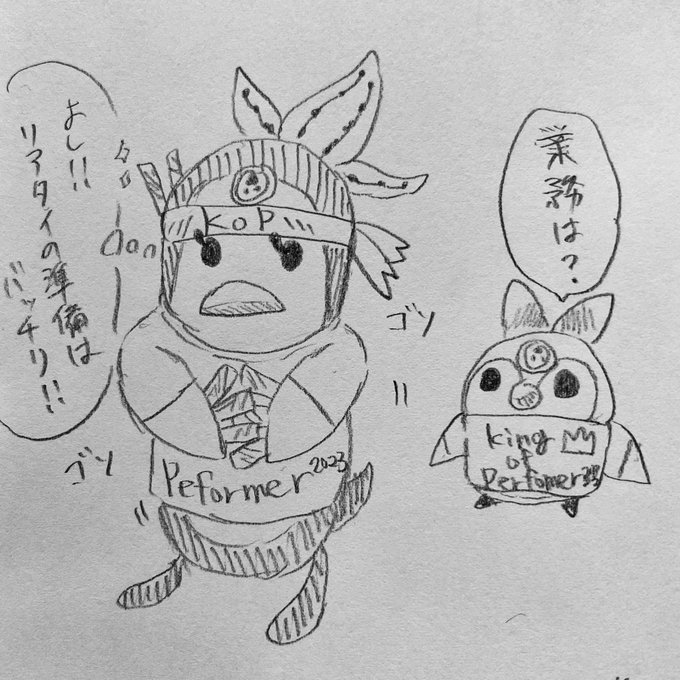 よし!!
リアタイの準備は
バッチリ!!
KoP
ゴソ
ゴソ
Peformer 2023
業務は?
king
of
Perfomer